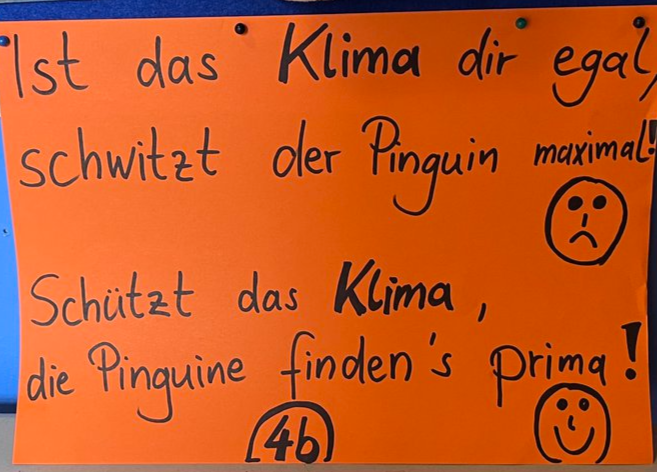 Ist das Klima dir egal,
schwitzt der Pinguin maximal!
Schützt das Klima,
die Pinguine finden's prima!
4b